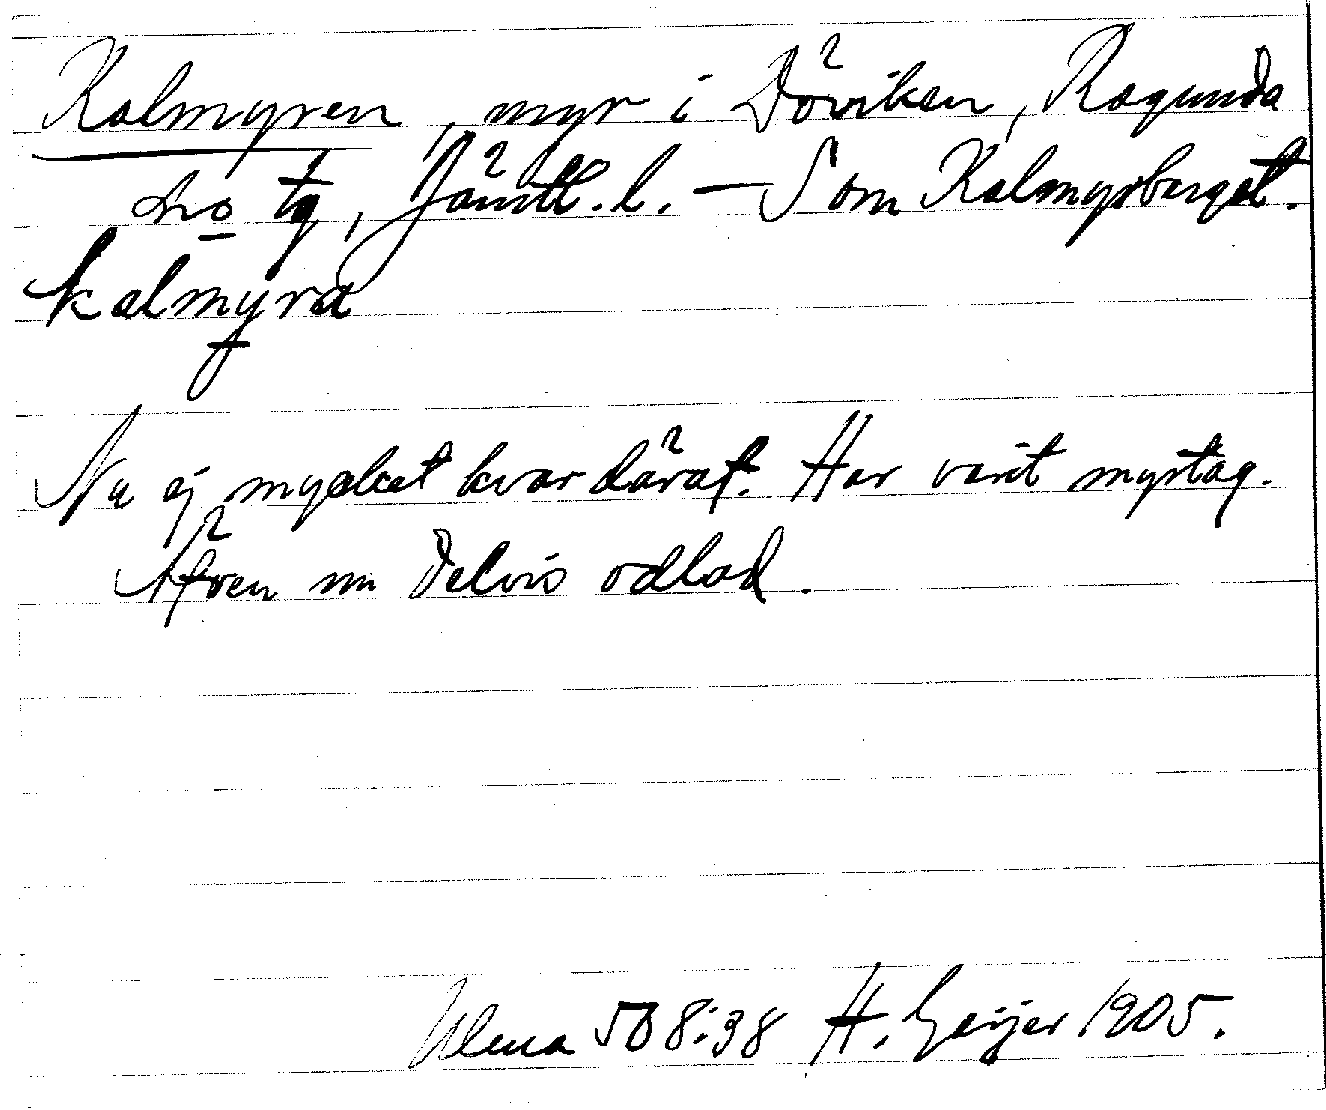 Kalmyren, myr i Döviken, Ragunda
sn o tg, Jämtl. l. — Som Kalmyrberget.
kalmyra
Nu ej mycket kvar däraf. Har varit myrtag.
Äfven nu delvis odlad.
Ulma 508:38 H. Geijer 1905.